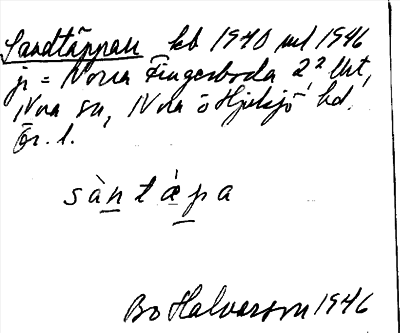 Sandtäppan kb 1940 ml 1946
js = Norra Fingerboda 2² Mt,
Nora sn, Nora o Hjulsjö hd.
Ör. l.
sàntæpa
Bo Halvarson 1946